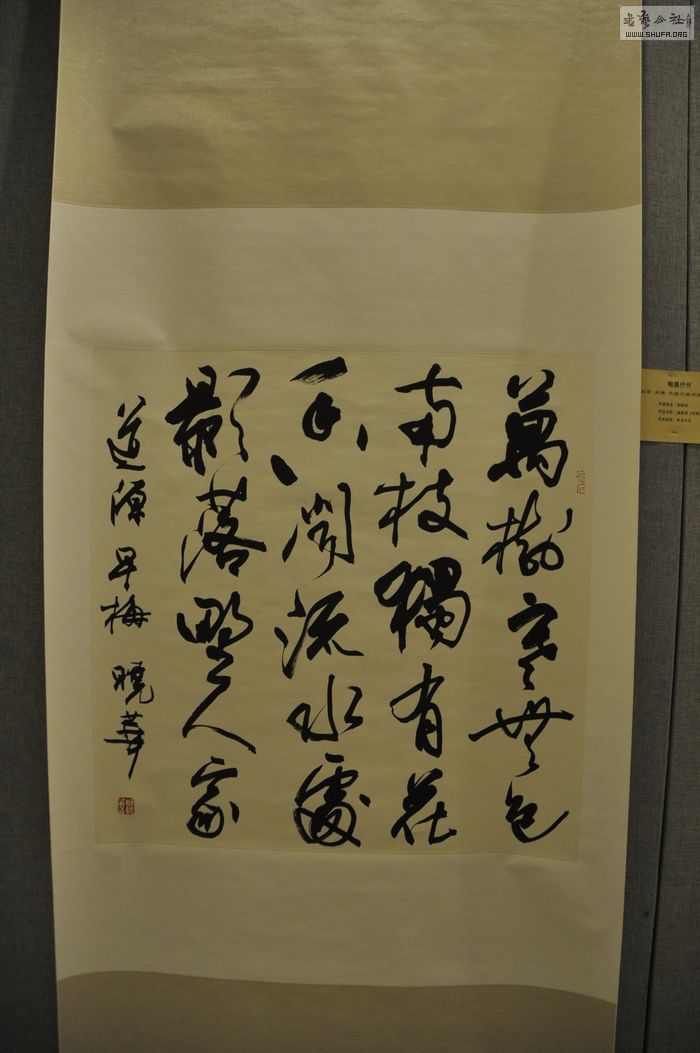 萬樹寒無色
南枝獨有花
香聞流水處
影落野人家
道源早梅 曉華
翰墨抒怀
WWW.SHUFA.ORG